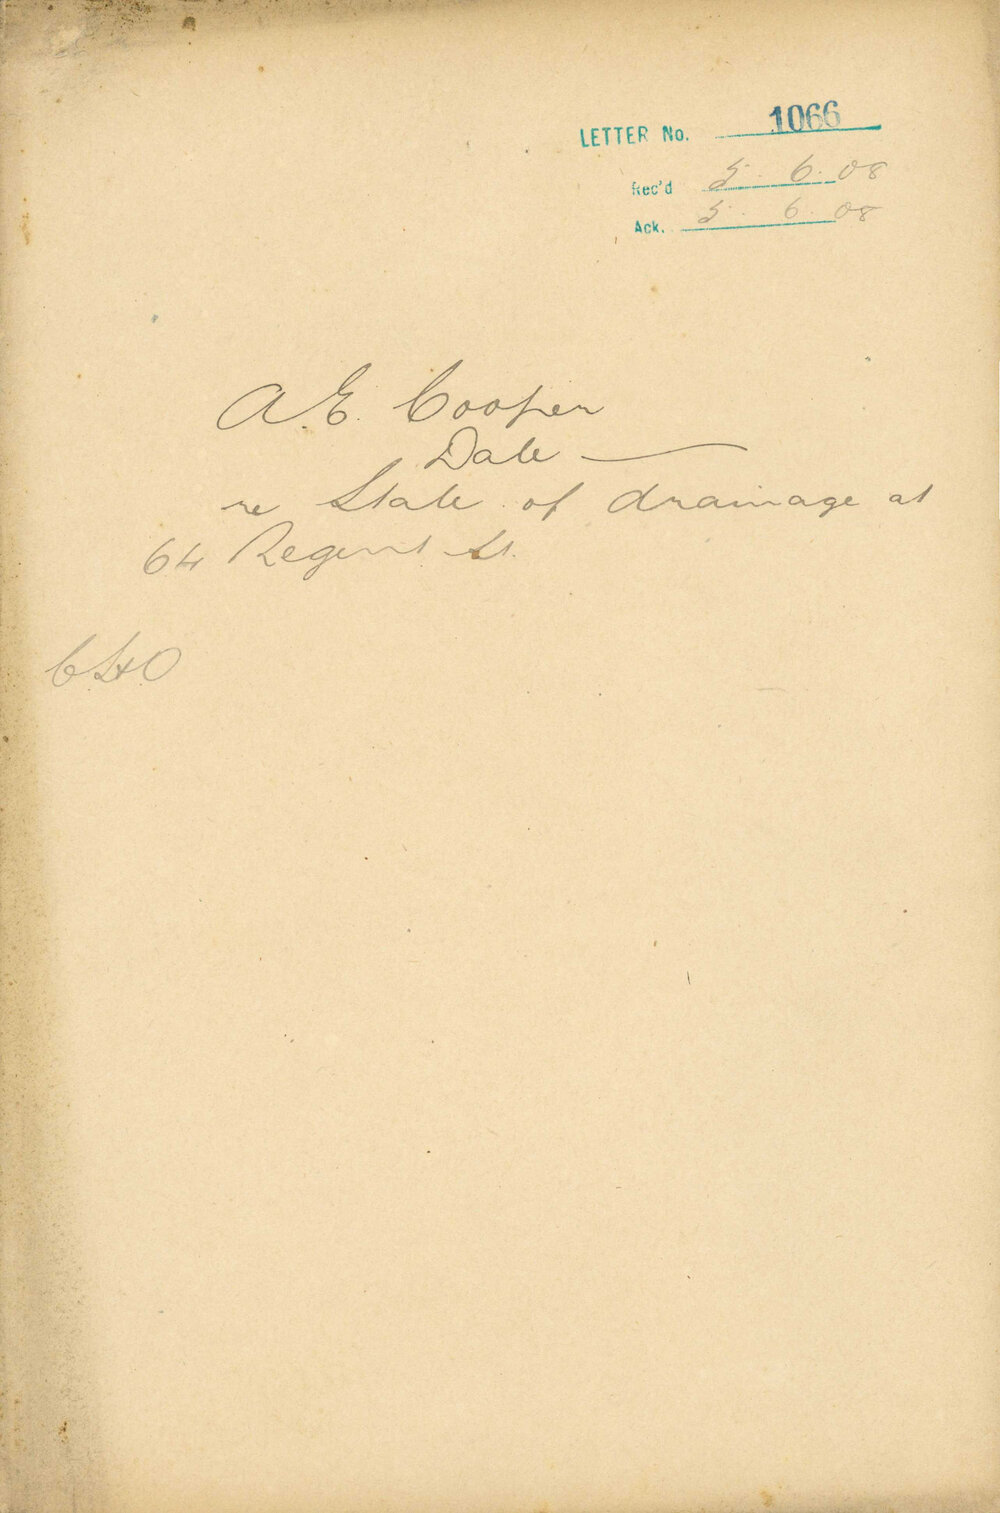 LETTER No. 1066
Rec'd 5. 6. 08
Ack. 5. 6. 08
A.E. Cooper
Date —
re State of drainage at
64 Regent St.